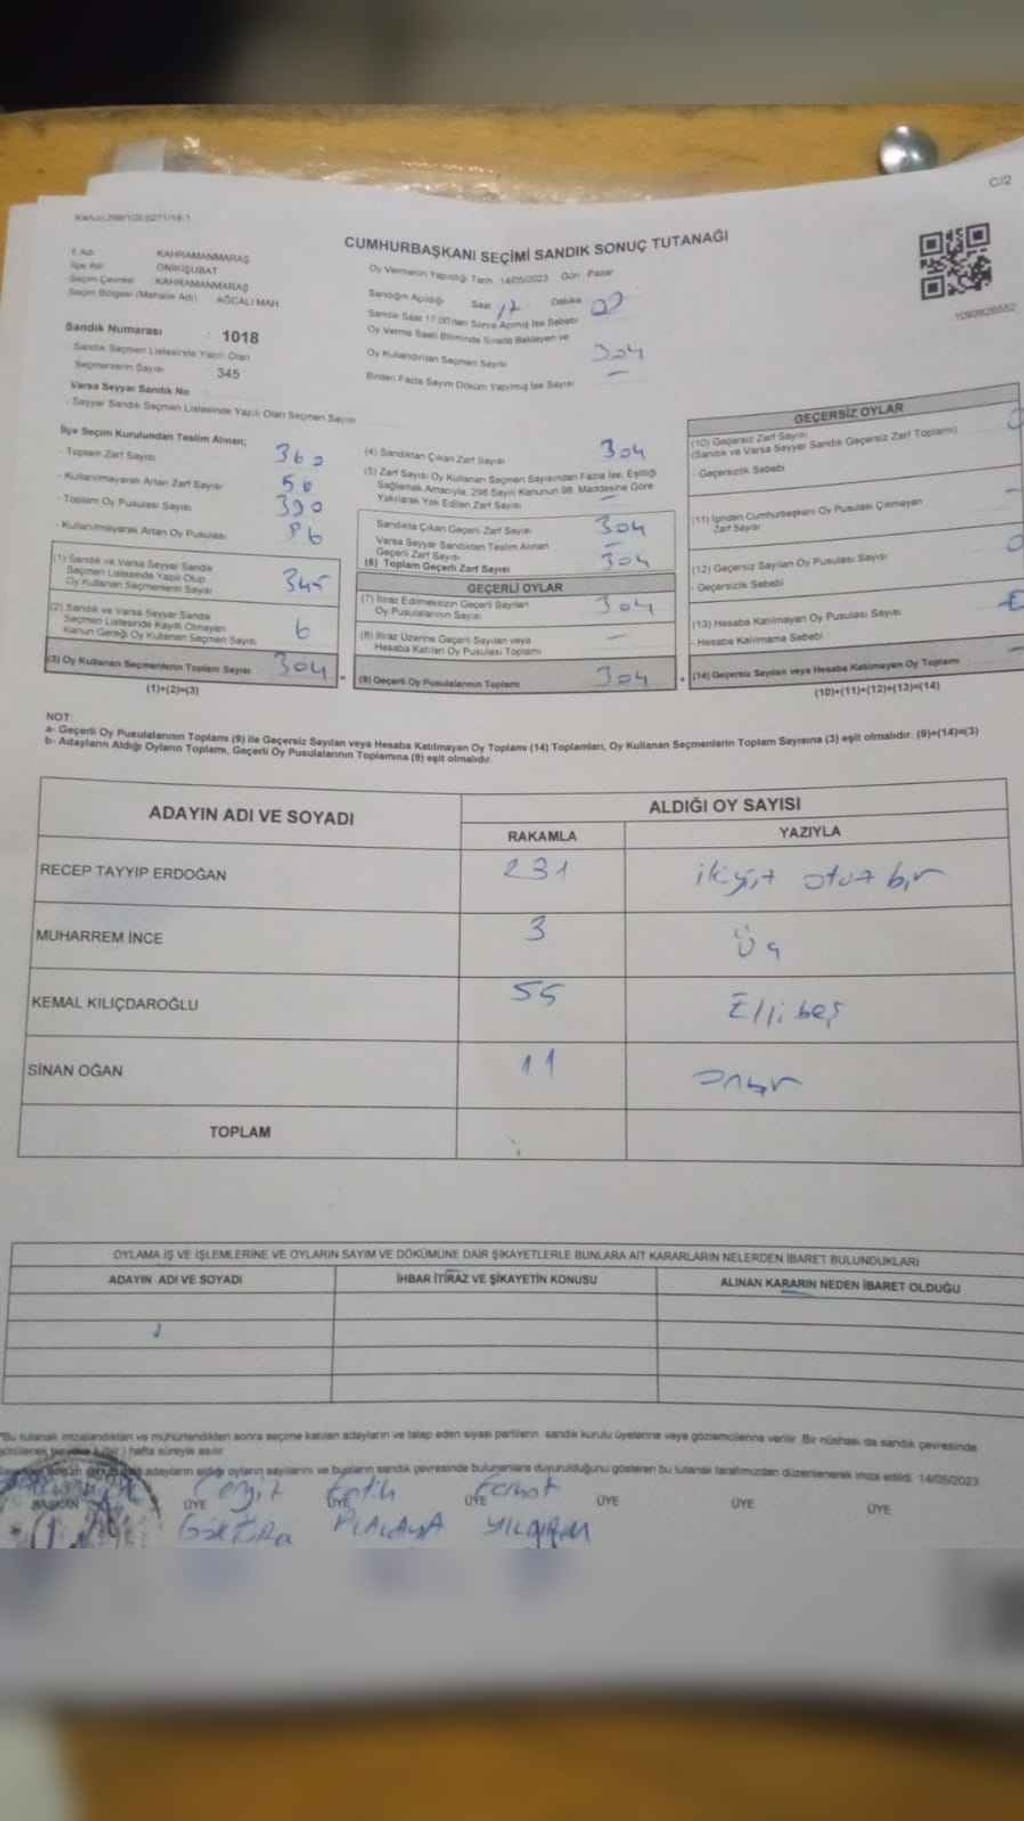 C/2
CUMHURBAŞKANI SEÇİMİ SANDIK SONUÇ TUTANAĞI
İl Adı KAHRAMANMARAŞ
İlçe Adı ONİKİŞUBAT
Seçim Çevresi KAHRAMANMARAŞ
Seçim Bölgesi (Mahalle Adı) AĞCALI MAH
Oy Vermenin Yapıldığı Tarih 14/05/2023 Gün Pazar
Sandığın Açıldığı Saat 17 Dakika 00
Sandık Saat 17.00'den Sonra Açılmış İse Sebebi
Sandık Numarası : 1018
Sandık Seçmen Listesinde Yazılı Olan
Seçmenlerin Sayısı 345
Oy Verme Saati Bitiminde Sırada Bekleyen ve
Oy Kullandırılan Seçmen Sayısı 304
Birden Fazla Sayım Döküm Yapılmış İse Sayısı –
Varsa Seyyar Sandık No
- Seyyar Sandık Seçmen Listesinde Yazılı Olan Seçmen Sayısı
İlçe Seçim Kurulundan Teslim Alınan;
- Toplam Zarf Sayısı 360
- Kullanılmayarak Artan Zarf Sayısı 56
- Toplam Oy Pusulası Sayısı 390
- Kullanılmayarak Artan Oy Pusulası 86
(1) Sandık ve Varsa Seyyar Sandık
Seçmen Listesinde Yazılı Olup
Oy Kullanan Seçmenlerin Sayısı 345
(2) Sandık ve Varsa Seyyar Sandık
Seçmen Listesinde Kayıtlı Olmayan
Kanun Gereği Oy Kullanan Seçmen Sayısı 6
(3) Oy Kullanan Seçmenlerin Toplam Sayısı 304
(1)+(2)=(3)
(4) Sandıktan Çıkan Zarf Sayısı 304
(5) Zarf Sayısı Oy Kullanan Seçmen Sayısından Fazla İse, Eşitliği
Sağlamak Amacıyla, 298 Sayılı Kanunun 98. Maddesine Göre
Yakılarak Yok Edilen Zarf Sayısı –
Sandıkta Çıkan Geçerli Zarf Sayısı 304
Varsa Seyyar Sandıktan Teslim Alınan
Geçerli Zarf Sayısı –
(6) Toplam Geçerli Zarf Sayısı 304
GEÇERLİ OYLAR
(7) İtiraz Edilmeksizin Geçerli Sayılan
Oy Pusulalarının Sayısı 304
(8) İtiraz Üzerine Geçerli Sayılan veya
Hesaba Katılan Oy Pusulası Toplamı –
(9) Geçerli Oy Pusulalarının Toplamı 304
GEÇERSİZ OYLAR
(10) Geçersiz Zarf Sayısı
(Sandık ve Varsa Seyyar Sandık Geçersiz Zarf Toplamı)
- Geçersizlik Sebebi
(11) İçinden Cumhurbaşkanı Oy Pusulası Çıkmayan
Zarf Sayısı –
(12) Geçersiz Sayılan Oy Pusulası Sayısı
- Geçersizlik Sebebi
(13) Hesaba Katılmayan Oy Pusulası Sayısı
- Hesaba Katılmama Sebebi
(14) Geçersiz Sayılan veya Hesaba Katılmayan Oy Toplamı –
(10)+(11)+(12)+(13)=(14)
NOT:
a- Geçerli Oy Pusulalarının Toplamı (9) ile Geçersiz Sayılan veya Hesaba Katılmayan Oy Toplamı (14) Toplamları, Oy Kullanan Seçmenlerin Toplam Sayısına (3) eşit olmalıdır. (9)+(14)=(3)
b- Adayların Aldığı Oyların Toplamı, Geçerli Oy Pusulalarının Toplamına (9) eşit olmalıdır.
ADAYIN ADI VE SOYADI
ALDIĞI OY SAYISI
RAKAMLA YAZIYLA
RECEP TAYYİP ERDOĞAN 231 ikiyüz otuz bir
MUHARREM İNCE 3 Üç
KEMAL KILIÇDAROĞLU 55 Elli beş
SİNAN OĞAN 11 onbir
TOPLAM
OYLAMA İŞ VE İŞLEMLERİNE VE OYLARIN SAYIM VE DÖKÜMÜNE DAİR ŞİKAYETLERLE BUNLARA AİT KARARLARIN NELERDEN İBARET BULUNDUKLARI
ADAYIN ADI VE SOYADI İHBAR İTİRAZ VE ŞİKAYETİN KONUSU ALINAN KARARIN NEDEN İBARET OLDUĞU
"Bu tutanak imzalandıktan ve mühürlendikten sonra seçime katılan adayların ve talep eden siyasi partilerin sandık kurulu üyelerine veya gözlemcilerine verilir. Bir nüshası da sandık çevresinde
hafta süreyle asılır
adayların aldığı oyların sayılarını ve bunların sandık çevresinde bulunanlara duyurulduğunu gösteren bu tutanak tarafımızdan düzenlenerek imza edildi. 14/05/2023
BAŞKAN ÜYE ÜYE ÜYE ÜYE ÜYE ÜYE
Fatih
YILDIRIM